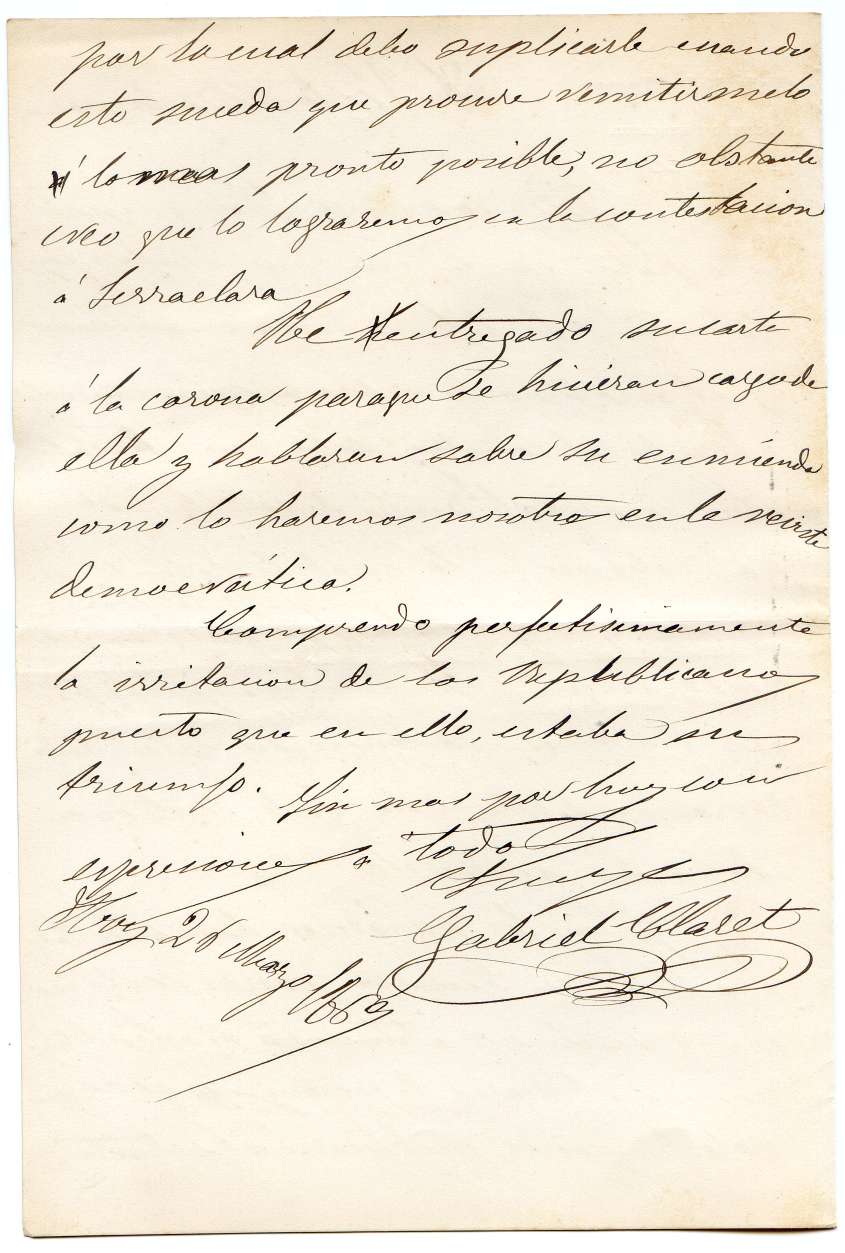 por lo cual debo suplicarle cuando
esto suceda que procure remitirmelo
á lo mas pronto posible, no obstante
creo que lo lograremos en la contestacion
á Serraclara
He entregado su carta
á la corona paraque se hicieran cargo de
ella y hablaran sobre su enmienda
como lo haremos nosotros en la
democrática.
Comprendo perfectisimamente
la irritacion de los republicanos
puesto que en ello, estaba su
triumfo. Sin mas por hoy con
espresiones a todos
Suyo
Gabriel Claret
Hoy 26 Marzo 1869